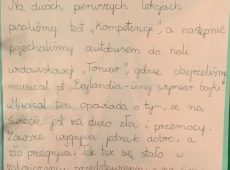 Na dwóch pierwszych lekcjach
pisaliśmy test „Kompetencji", a następnie
pojechaliśmy autobusem do hali
widowiskowej „Torwar", gdzie obejrzeliśmy
musical pt „Bajlandia - inny wymiar bajki".
Musical ten opowiada o tym, że na
świecie jest za dużo zła, i przemocy.
Zawsze wygrywa jednak dobro, a
zło przegrywa. Tak też się stało w